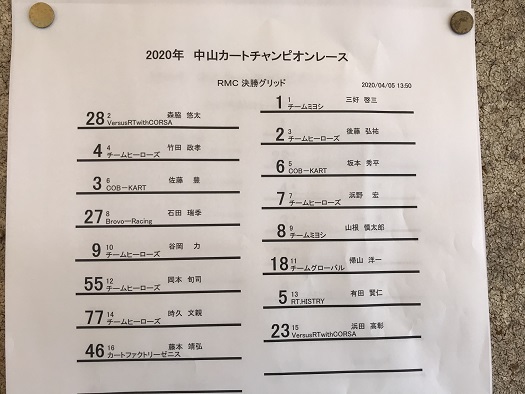 2020年 中山カートチャンピオンレース
RMC 決勝グリッド 2020/04/05 13:50
1 1 三好 啓三
チームミヨシ
28 2 森脇 悠太
VersusRTwithCORSA
2 3 後藤 弘祐
チームヒーローズ
4 4 竹田 政孝
チームヒーローズ
6 5 坂本 秀平
COB-KART
3 6 佐藤 豊
COB-KART
7 7 浜野 宏
チームヒーローズ
27 8 石田 瑞季
Brovo-Racing
8 9 山根 慎太郎
チームミヨシ
9 10 谷岡 力
チームヒーローズ
18 11 帰山 洋一
チームグローバル
55 12 岡本 旬司
チームヒーローズ
5 13 有田 賢仁
RT.HISTRY
77 14 時久 文親
チームヒーローズ
23 15 浜田 高彰
VersusRTwithCORSA
46 16 藤本 靖弘
カートファクトリーゼニス